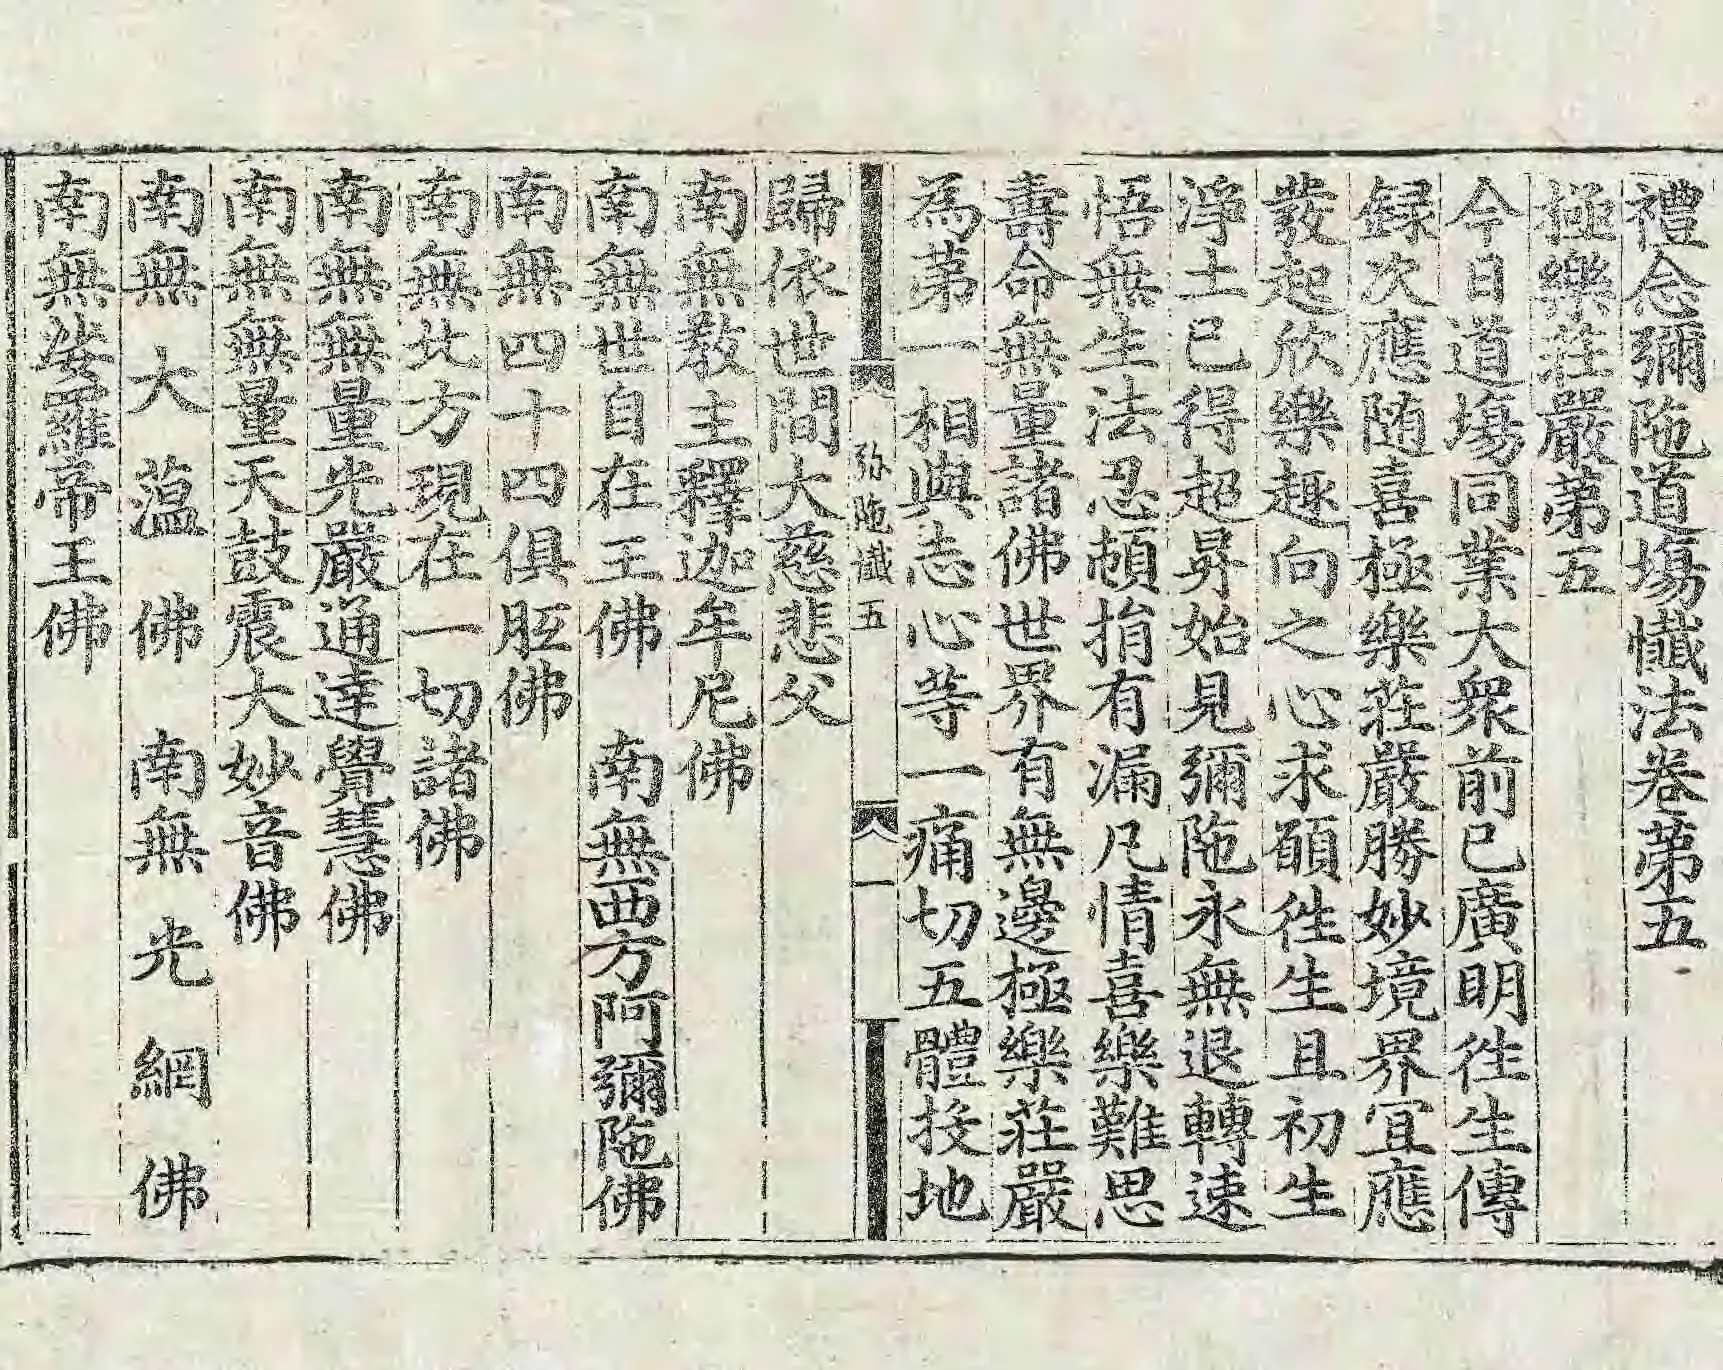 禮念彌陁道塲懺法卷第五
極樂莊嚴第五
今日道塲同業大衆前已廣明徃生傳
録次應随喜極樂莊嚴勝妙境界宜應
發起欣樂趣向之心求願徃生且初生
淨土已得超昇始見彌陁永無退轉速
悟無生法忍頓捐有漏凡情喜樂難思
壽命無量諸佛世界有無邊極樂莊嚴
為第一相與志心等一痛切五體投地
弥陁懺五 一
歸依世間大慈悲父
南無敎主釋迦牟尼佛
南無世自在王佛 南無西方阿彌陁佛
南無四十四俱胝佛
南無北方現在一切諸佛
南無無量光嚴通達覺慧佛
南無無量天鼓震大妙音佛
南無大蕰佛 南無光網佛
南無娑羅帝王佛